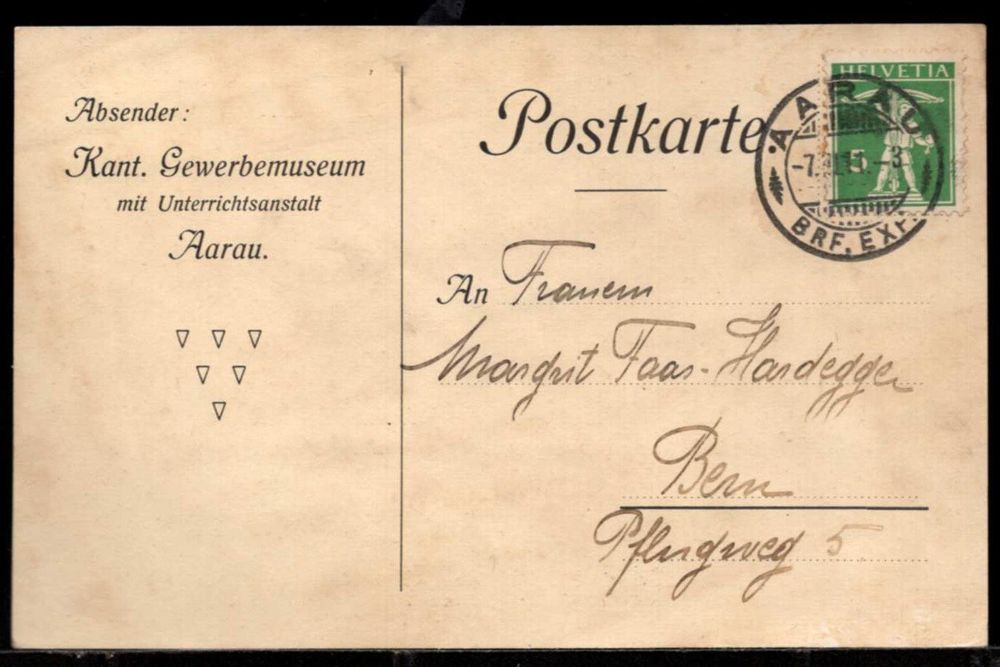 Absender:
Kant. Gewerbemuseum
mit Unterrichtsanstalt
Aarau.
Postkarte
HELVETIA
5
AARAU
-3
BRF. EXP.
An
Margrit Faas-Hardegger
Bern
Pflugweg 5